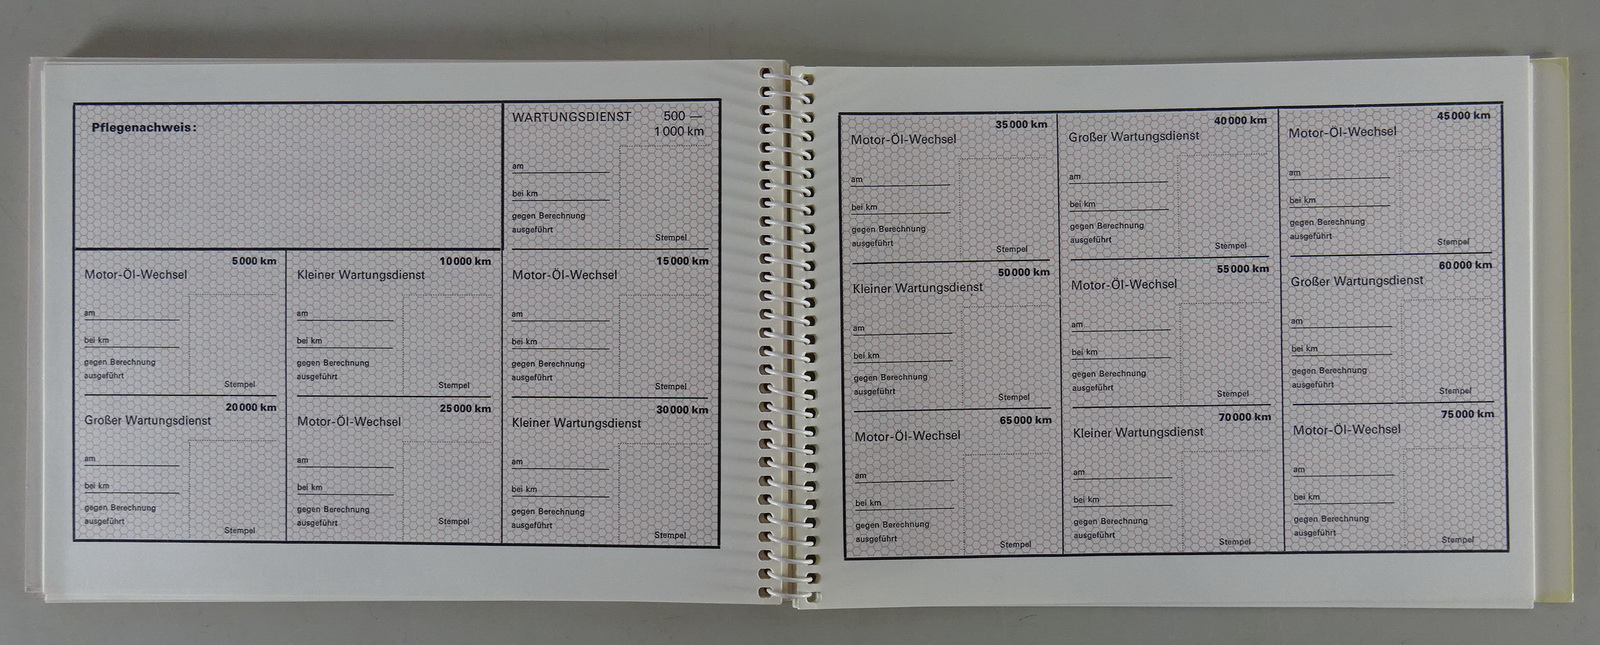 Pflegenachweis:
WARTUNGSDIENST 500 —
1 000 km
am
bei km
gegen Berechnung
ausgeführt
Stempel
5 000 km
Motor-Öl-Wechsel
am
bei km
gegen Berechnung
ausgeführt
Stempel
10 000 km
Kleiner Wartungsdienst
am
bei km
gegen Berechnung
ausgeführt
Stempel
15 000 km
Motor-Öl-Wechsel
am
bei km
gegen Berechnung
ausgeführt
Stempel
20 000 km
Großer Wartungsdienst
am
bei km
gegen Berechnung
ausgeführt
Stempel
25 000 km
Motor-Öl-Wechsel
am
bei km
gegen Berechnung
ausgeführt
Stempel
30 000 km
Kleiner Wartungsdienst
am
bei km
gegen Berechnung
ausgeführt
Stempel
35 000 km
Motor-Öl-Wechsel
am
bei km
gegen Berechnung
ausgeführt
Stempel
40 000 km
Großer Wartungsdienst
am
bei km
gegen Berechnung
ausgeführt
Stempel
45 000 km
Motor-Öl-Wechsel
am
bei km
gegen Berechnung
ausgeführt
Stempel
50 000 km
Kleiner Wartungsdienst
am
bei km
gegen Berechnung
ausgeführt
Stempel
55 000 km
Motor-Öl-Wechsel
am
bei km
gegen Berechnung
ausgeführt
Stempel
60 000 km
Großer Wartungsdienst
am
bei km
gegen Berechnung
ausgeführt
Stempel
65 000 km
Motor-Öl-Wechsel
am
bei km
gegen Berechnung
ausgeführt
Stempel
70 000 km
Kleiner Wartungsdienst
am
bei km
gegen Berechnung
ausgeführt
Stempel
75 000 km
Motor-Öl-Wechsel
am
bei km
gegen Berechnung
ausgeführt
Stempel